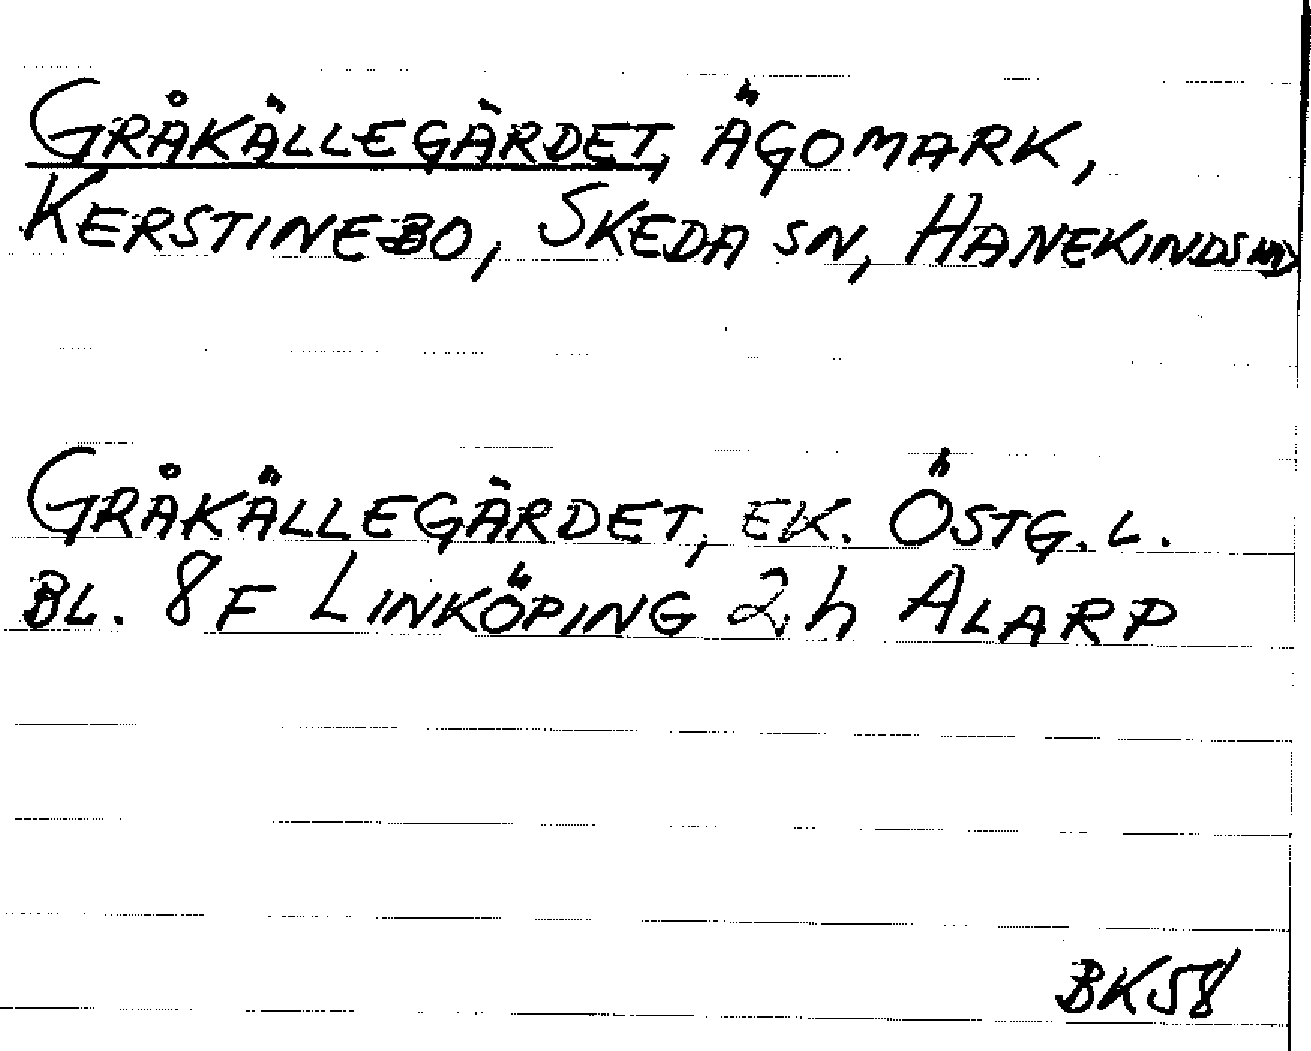 GRÅKÄLLEGÄRDET, ÄGOMARK,
KERSTINEBO, SKEDA SN, HANEKINDS HD
GRÅKÄLLEGÄRDET, EK. ÖSTG. L.
BL. 8F LINKÖPING 2h ALARP
BK58